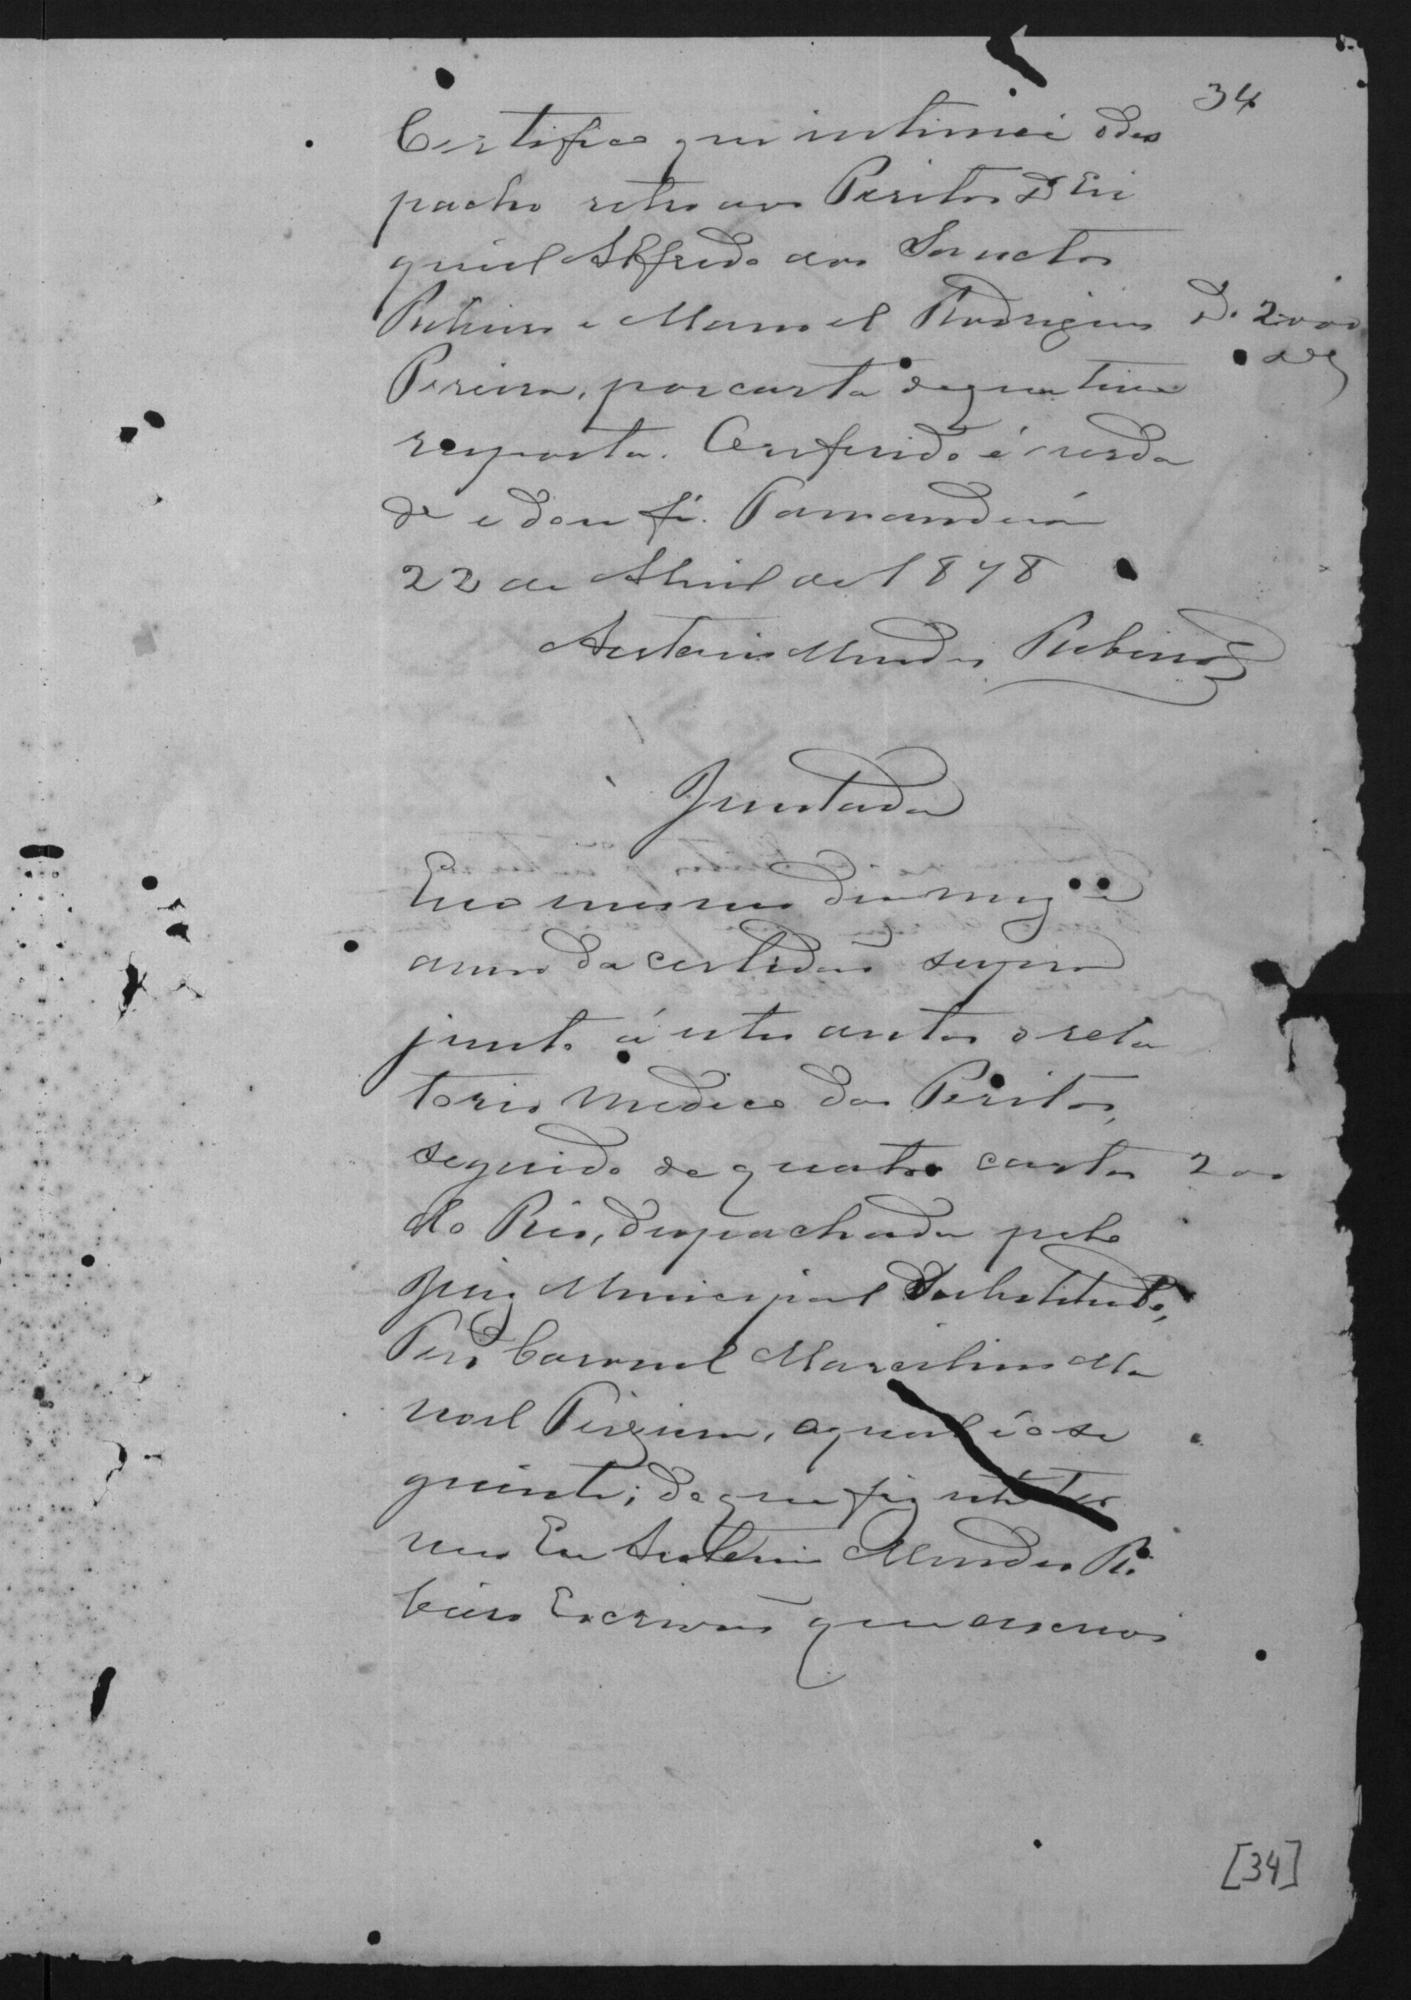 34
Certifico que intimei o des
pacho retro aos Peritos Dr Eze
quiel Alfredo dos Sanctos
Ribeiro e Manoel Rodrigues D. 2000
Pereira, por carta de que tive
resposta. O referido é verda
de e dou fé. Tamanduá
22 de Abril de 1878
Antonio Mendes Ribeiro
Juntada
Em o mesmo dia mez e
anno da certidaõ supra
junto á estes autos o rela
torio medico dos Peritos,
seguido de quatro cartas 200
do Reo, despachada pelo
Juiz Municipal Substituto,
Ten.e Coronel Marcelino Ma
noel Pereira, o qual é o se
guinte; do que fiz este ter
mo Eu Antonio Mendes Ri
beiro Escrivaõ que escrevi
[34]